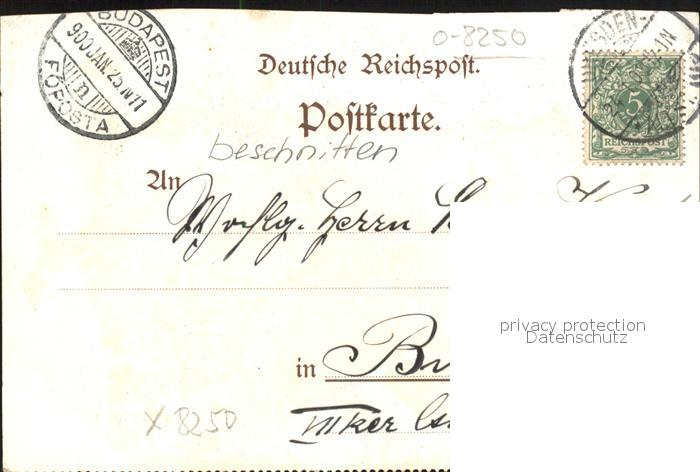 BUDAPEST
900 JAN. 25. N 11
FŐPOSTA
0-8250
Deutsche Reichspost.
Postkarte.
5
REICHSPOST
beschnitten
An
Wohlg. Herrn
privacy protection
Datenschutz
in Bu
X 8250
VIIIker